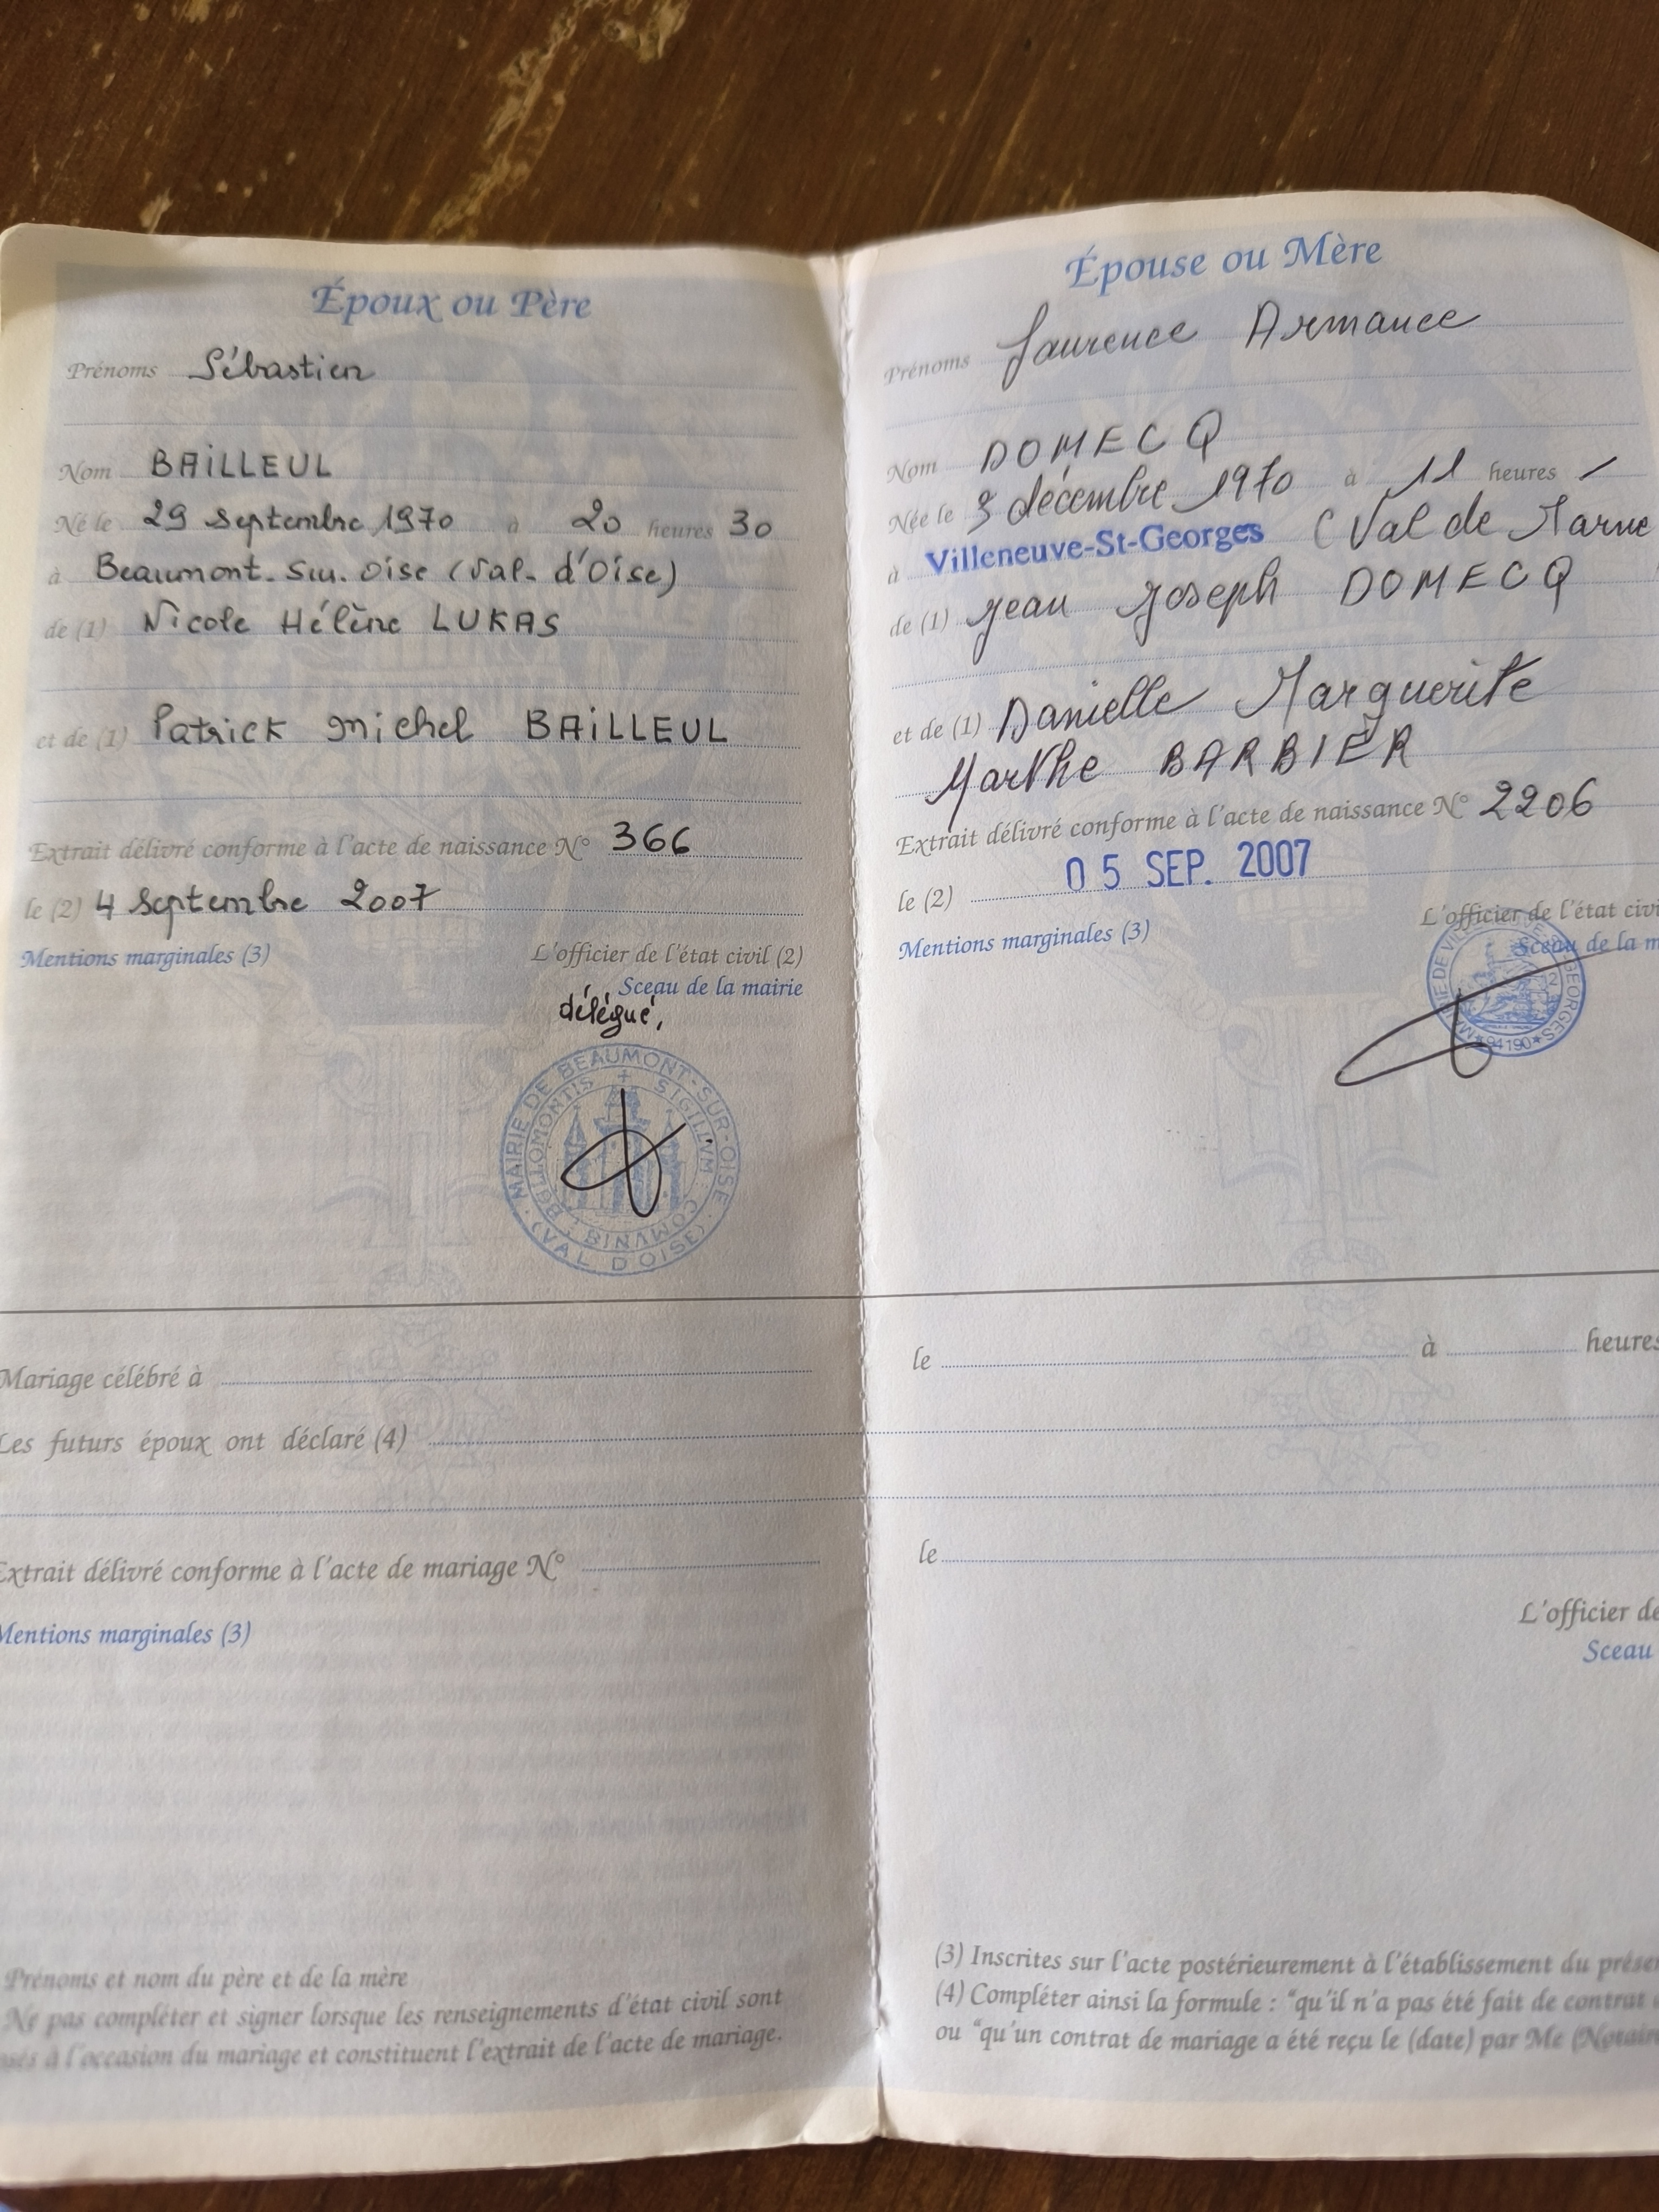 Époux ou Père
Prénoms Sébastien
Nom BAiLLEUL
Né le 29 Septembre 1970 à 20 heures 30
à Beaumont-Sur-Oise (Val-d'Oise)
de (1) Nicole Hélène LUKAS
et de (1) Patrick Michel BAiLLEUL
Extrait délivré conforme à l'acte de naissance N° 366
le (2) 4 Septembre 2007
Mentions marginales (3)
L'officier de l'état civil (2)
Sceau de la mairie
délégué,
MAIRIE DE BEAUMONT-SUR-OISE
(VAL D'OISE)
SIGILLVM COMVNIS BELLOMONTIS
Mariage célébré à
Les futurs époux ont déclaré (4)
Extrait délivré conforme à l'acte de mariage N°
Mentions marginales (3)
Prénoms et nom du père et de la mère
Ne pas compléter et signer lorsque les renseignements d'état civil sont
à l'occasion du mariage et constituent l'extrait de l'acte de mariage.
Épouse ou Mère
Prénoms Laurence Armance
Nom DOMECQ
Née le 3 décembre 1970 à 11 heures /
à Villeneuve-St-Georges (Val de Marne
de (1) Jean Joseph DOMECQ
et de (1) Danielle Marguerite
Marthe BARBIER
Extrait délivré conforme à l'acte de naissance N° 2206
le (2) 05 SEP. 2007
Mentions marginales (3)
L'officier de l'état civi
Sceau de la m
94190
le à heures
le
L'officier de
Sceau
(3) Inscrites sur l'acte postérieurement à l'établissement du prése
(4) Compléter ainsi la formule : "qu'il n'a pas été fait de contrat
ou "qu'un contrat de mariage a été reçu le (date) par Me (Notaire